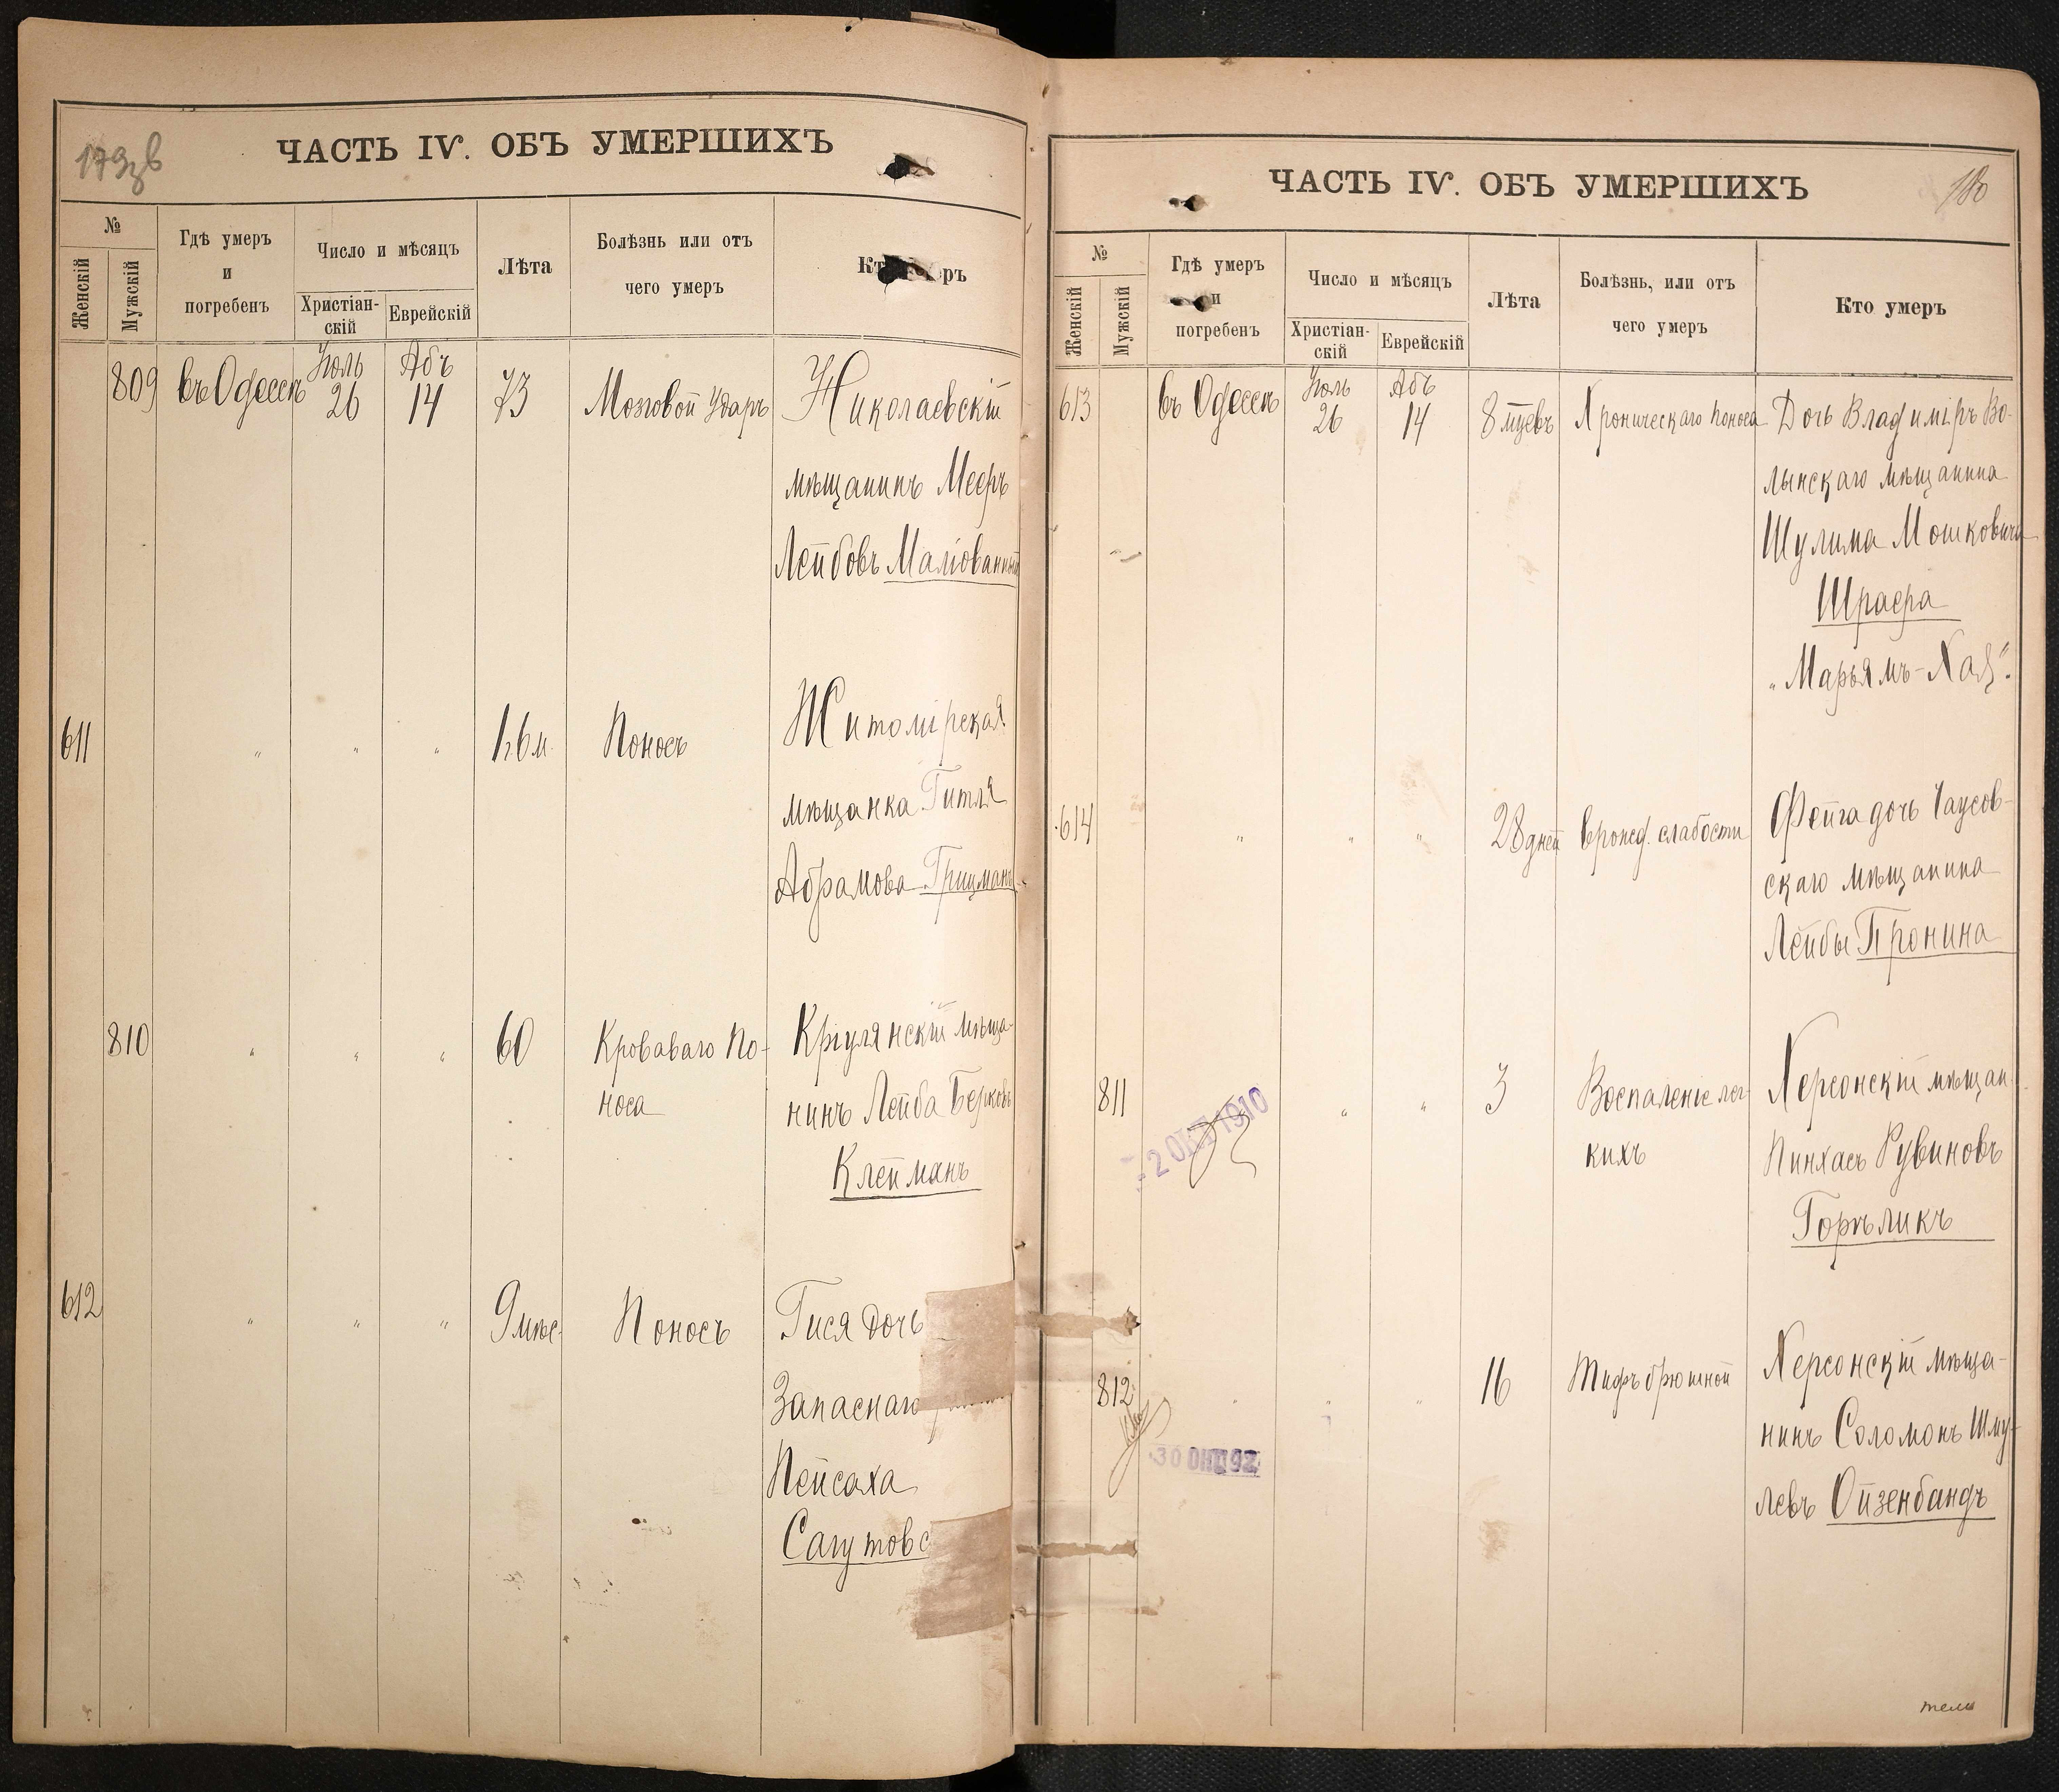 179зв
ЧАСТЬ IV. ОБЪ УМЕРШИХЪ
№
Женскій
Мужскій
Гдѣ умеръ
и
погребенъ
Число и мѣсяцъ
Христіан-
скій
Еврейскій
Лѣта
Болѣзнь или отъ
чего умеръ
809 въ Одессѣ Іюль 26 Абъ 14 73 Мозговой Ударъ Николаевскій
мѣщанинъ Мееръ
Лейбовъ Маліованный
611 " " " 1, 6 м. Поносъ Житомірская
мѣщанка Гитля
Абрамова Грицманъ
810 " " " 60 Кроваваго По- Кріулянскій мѣща-
носа нинъ Лейба Берковъ
Клейманъ
612 " " " 9 мѣс. Поносъ Гися дочь
Запаснаго
Пейсаха
Сагутовс
ЧАСТЬ IV. ОБЪ УМЕРШИХЪ
180
№
Женскій
Мужскій
Гдѣ умеръ
и
погребенъ
Число и мѣсяцъ
Христіан-
скій
Еврейскій
Лѣта
Болѣзнь, или отъ
чего умеръ
Кто умеръ
613 въ Одессѣ Іюль 26 Абъ 14 8 мцевъ Хроническаго поноса Дочь Владиміръ Во-
лынскаго мѣщанина
Шулима Мошковича
Шраера
"Марьямъ-Хая".
614 " " " 28 дней врожд. слабости Фейга дочь Чаусов-
скаго мѣщанина
Лейбы Пронина
811 " " 3 Воспаленіе лег- Херсонскій мѣщан.
кихъ Пинхасъ Рувиновъ
Горѣликъ
- 2 ОКТ 1910
812 " " " 16 Тифъ брюшной Херсонскій мѣща-
нинъ Соломонъ Шму-
левъ Ойзенбандъ
30 92